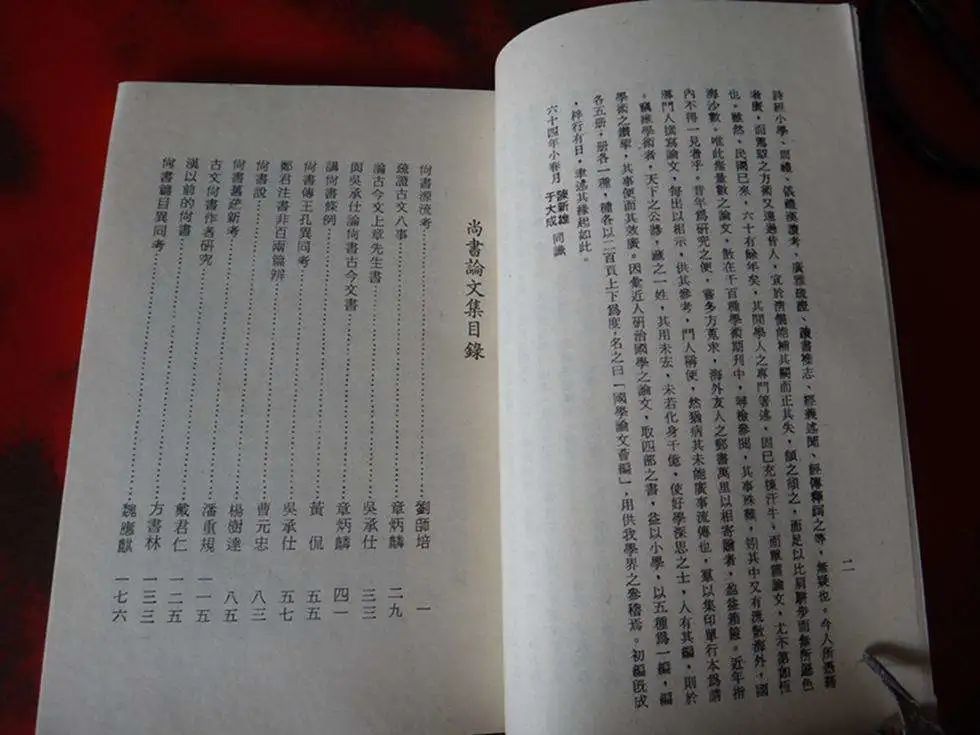 詩經小學、周禮、儀禮漢讀考、廣雅疏證、讀書雜志、經義述聞、經傳釋詞之等，無疑也。今人所憑藉
者廣，而駕馭之方術又遠過昔人，宜於清儒能補其闕而正其失，頡之頏之，而足以比肩
也。雖然，民國已來，六十有餘年矣，其間學人之專門著述，固已充棟汗牛，而單篇論文，尤不第如恆
海沙數。唯此無量數之論文，散在千百種學術期刊中，尋檢參閱，其事殊難，矧其中又有流散海外，國
內不得一見者乎。昔年爲研究之便，嘗多方蒐求，海外友人之郵書萬里以相寄贈者，盈益箱篋。近年指
導門人撰寫論文，每出以相示，供其參考，門人稱便，然猶病其未能廣事流傳也，羣以集印單行本爲請
。竊維學術者，天下之公器，藏之一姓，其用未宏，未若化身千億，使好學深思之士，人有其編，則於
學術之鑽揅，其事便而其效廣。因彙近人研治國學之論文，取四部之書，益以小學，以五種爲一編，編
各五册，册各一種，種各以二百頁上下爲度，名之曰「國學論文薈編」，用供我學界之參稽焉。初編既成
，梓行有日，聿述其緣起如此。
六十四年小春月 陳新雄 于大成 同識
二
尚書論文集目錄
尚書源流考……劉師培 一
疏證古文八事……章炳麟 二九
論古今文上章先生書……吳承仕 三三
與吳承仕論尚書古今文書……章炳麟 四一
講尚書條例……黃侃 五五
尚書傳王孔異同考……吳承仕 五七
鄭君注書非百兩篇辨……曹元忠 八三
尚書說……楊樹達 八五
尚書舊疏新考……潘重規 一一五
古文尚書作者研究……戴君仁 一二五
漢以前的尚書……方書林 一三三
尚書篇目異同考……魏應麒 一七六